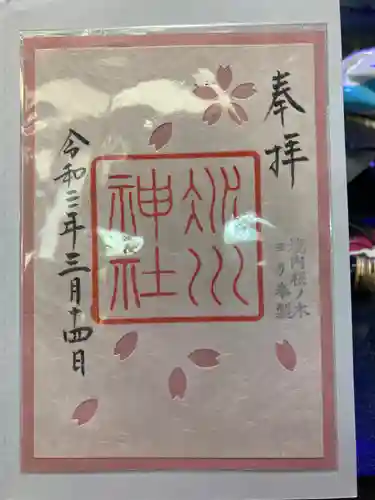 奉拝
冰川
神社
境内桜ノ木
ヨリ奉製
令和三年三月十四日